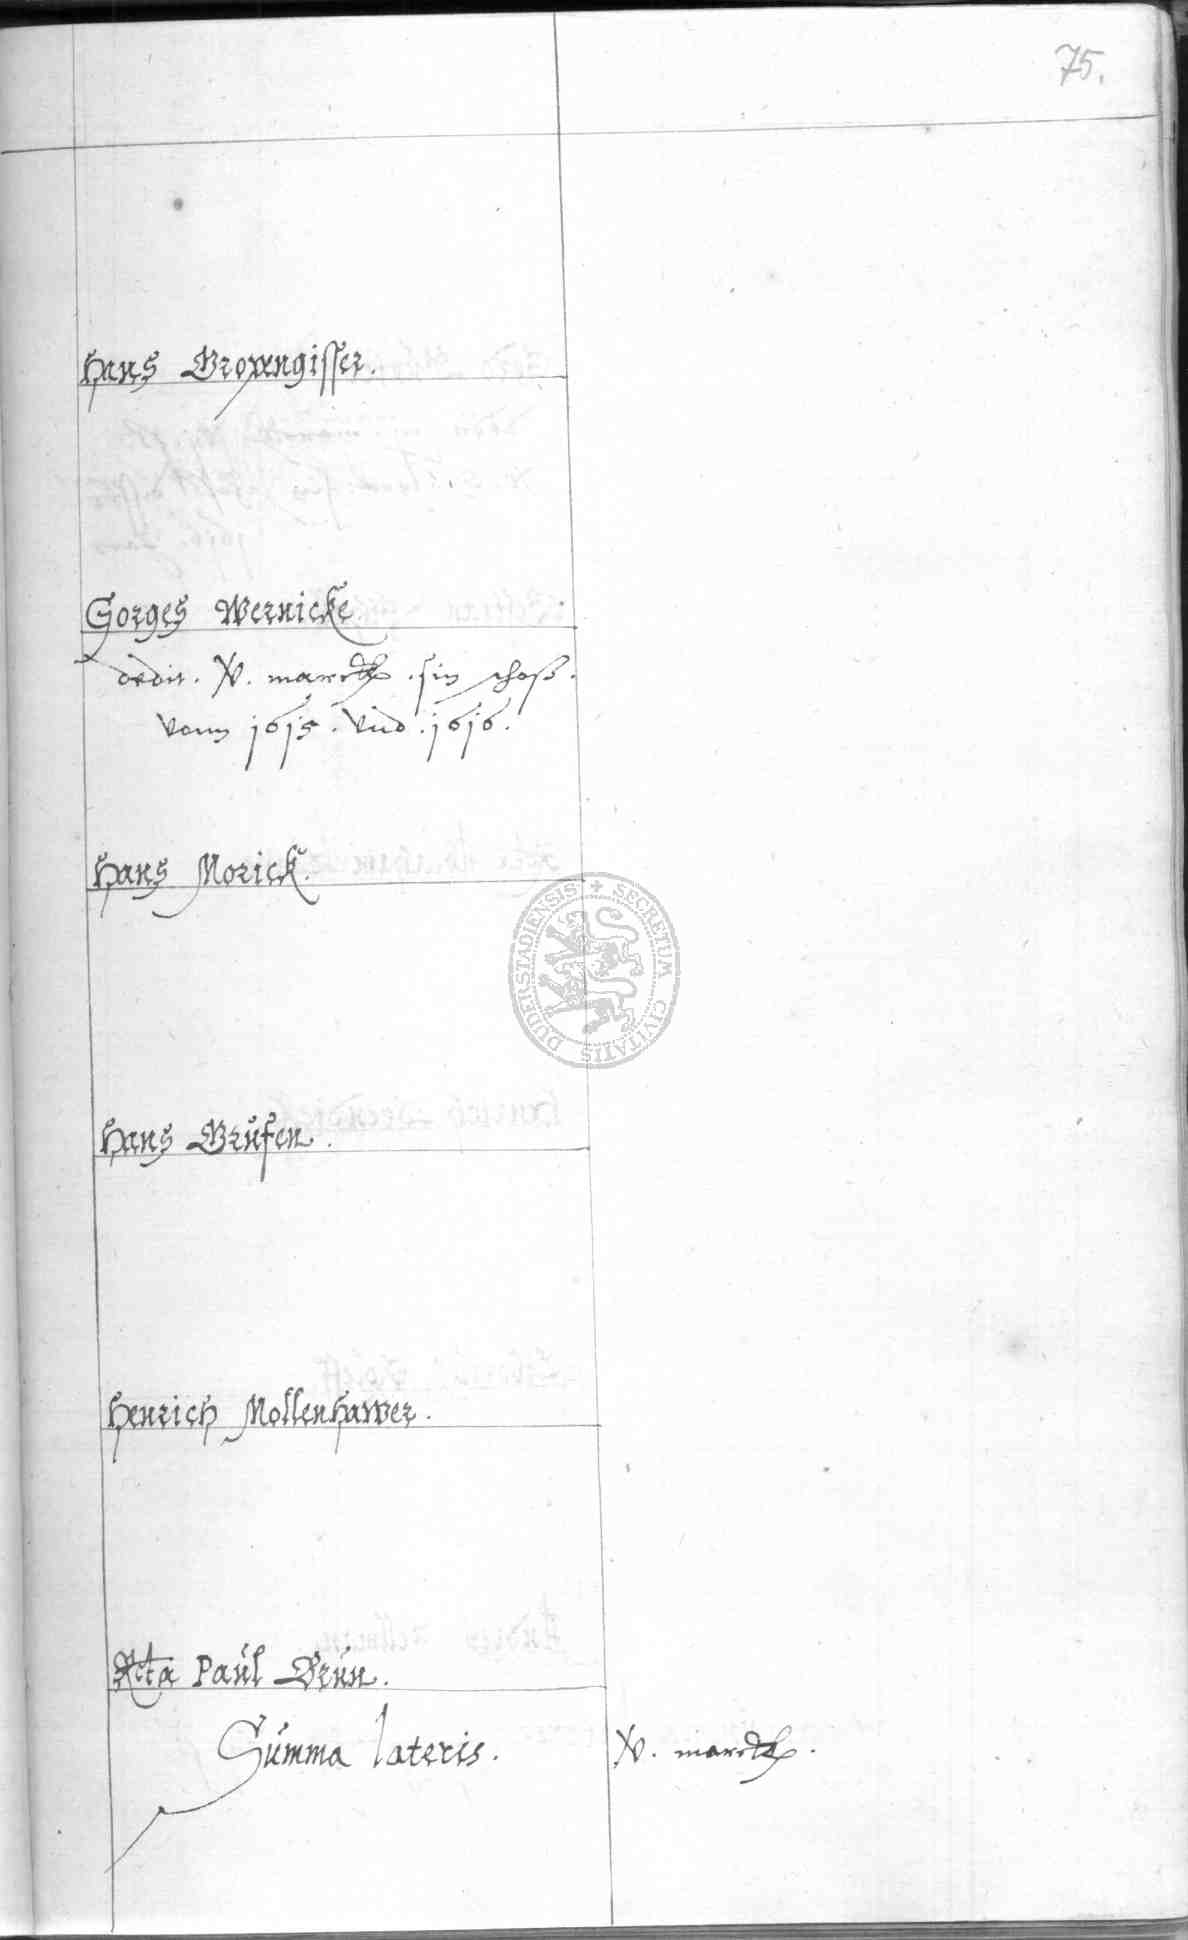 75.
Hans Gropengisser.
Gorges Wernicke
dedit . XV . marck . sin schoss .
vonn 1615 . vnd . 1616 .
Hans Morick.
DUDERSTADIENSIS + SECRETUM CIVITATIS
Hans Grufen .
Henrich Mollenhawer .
Relicta Paul Grün .
Summa lateris .
XV . marck .